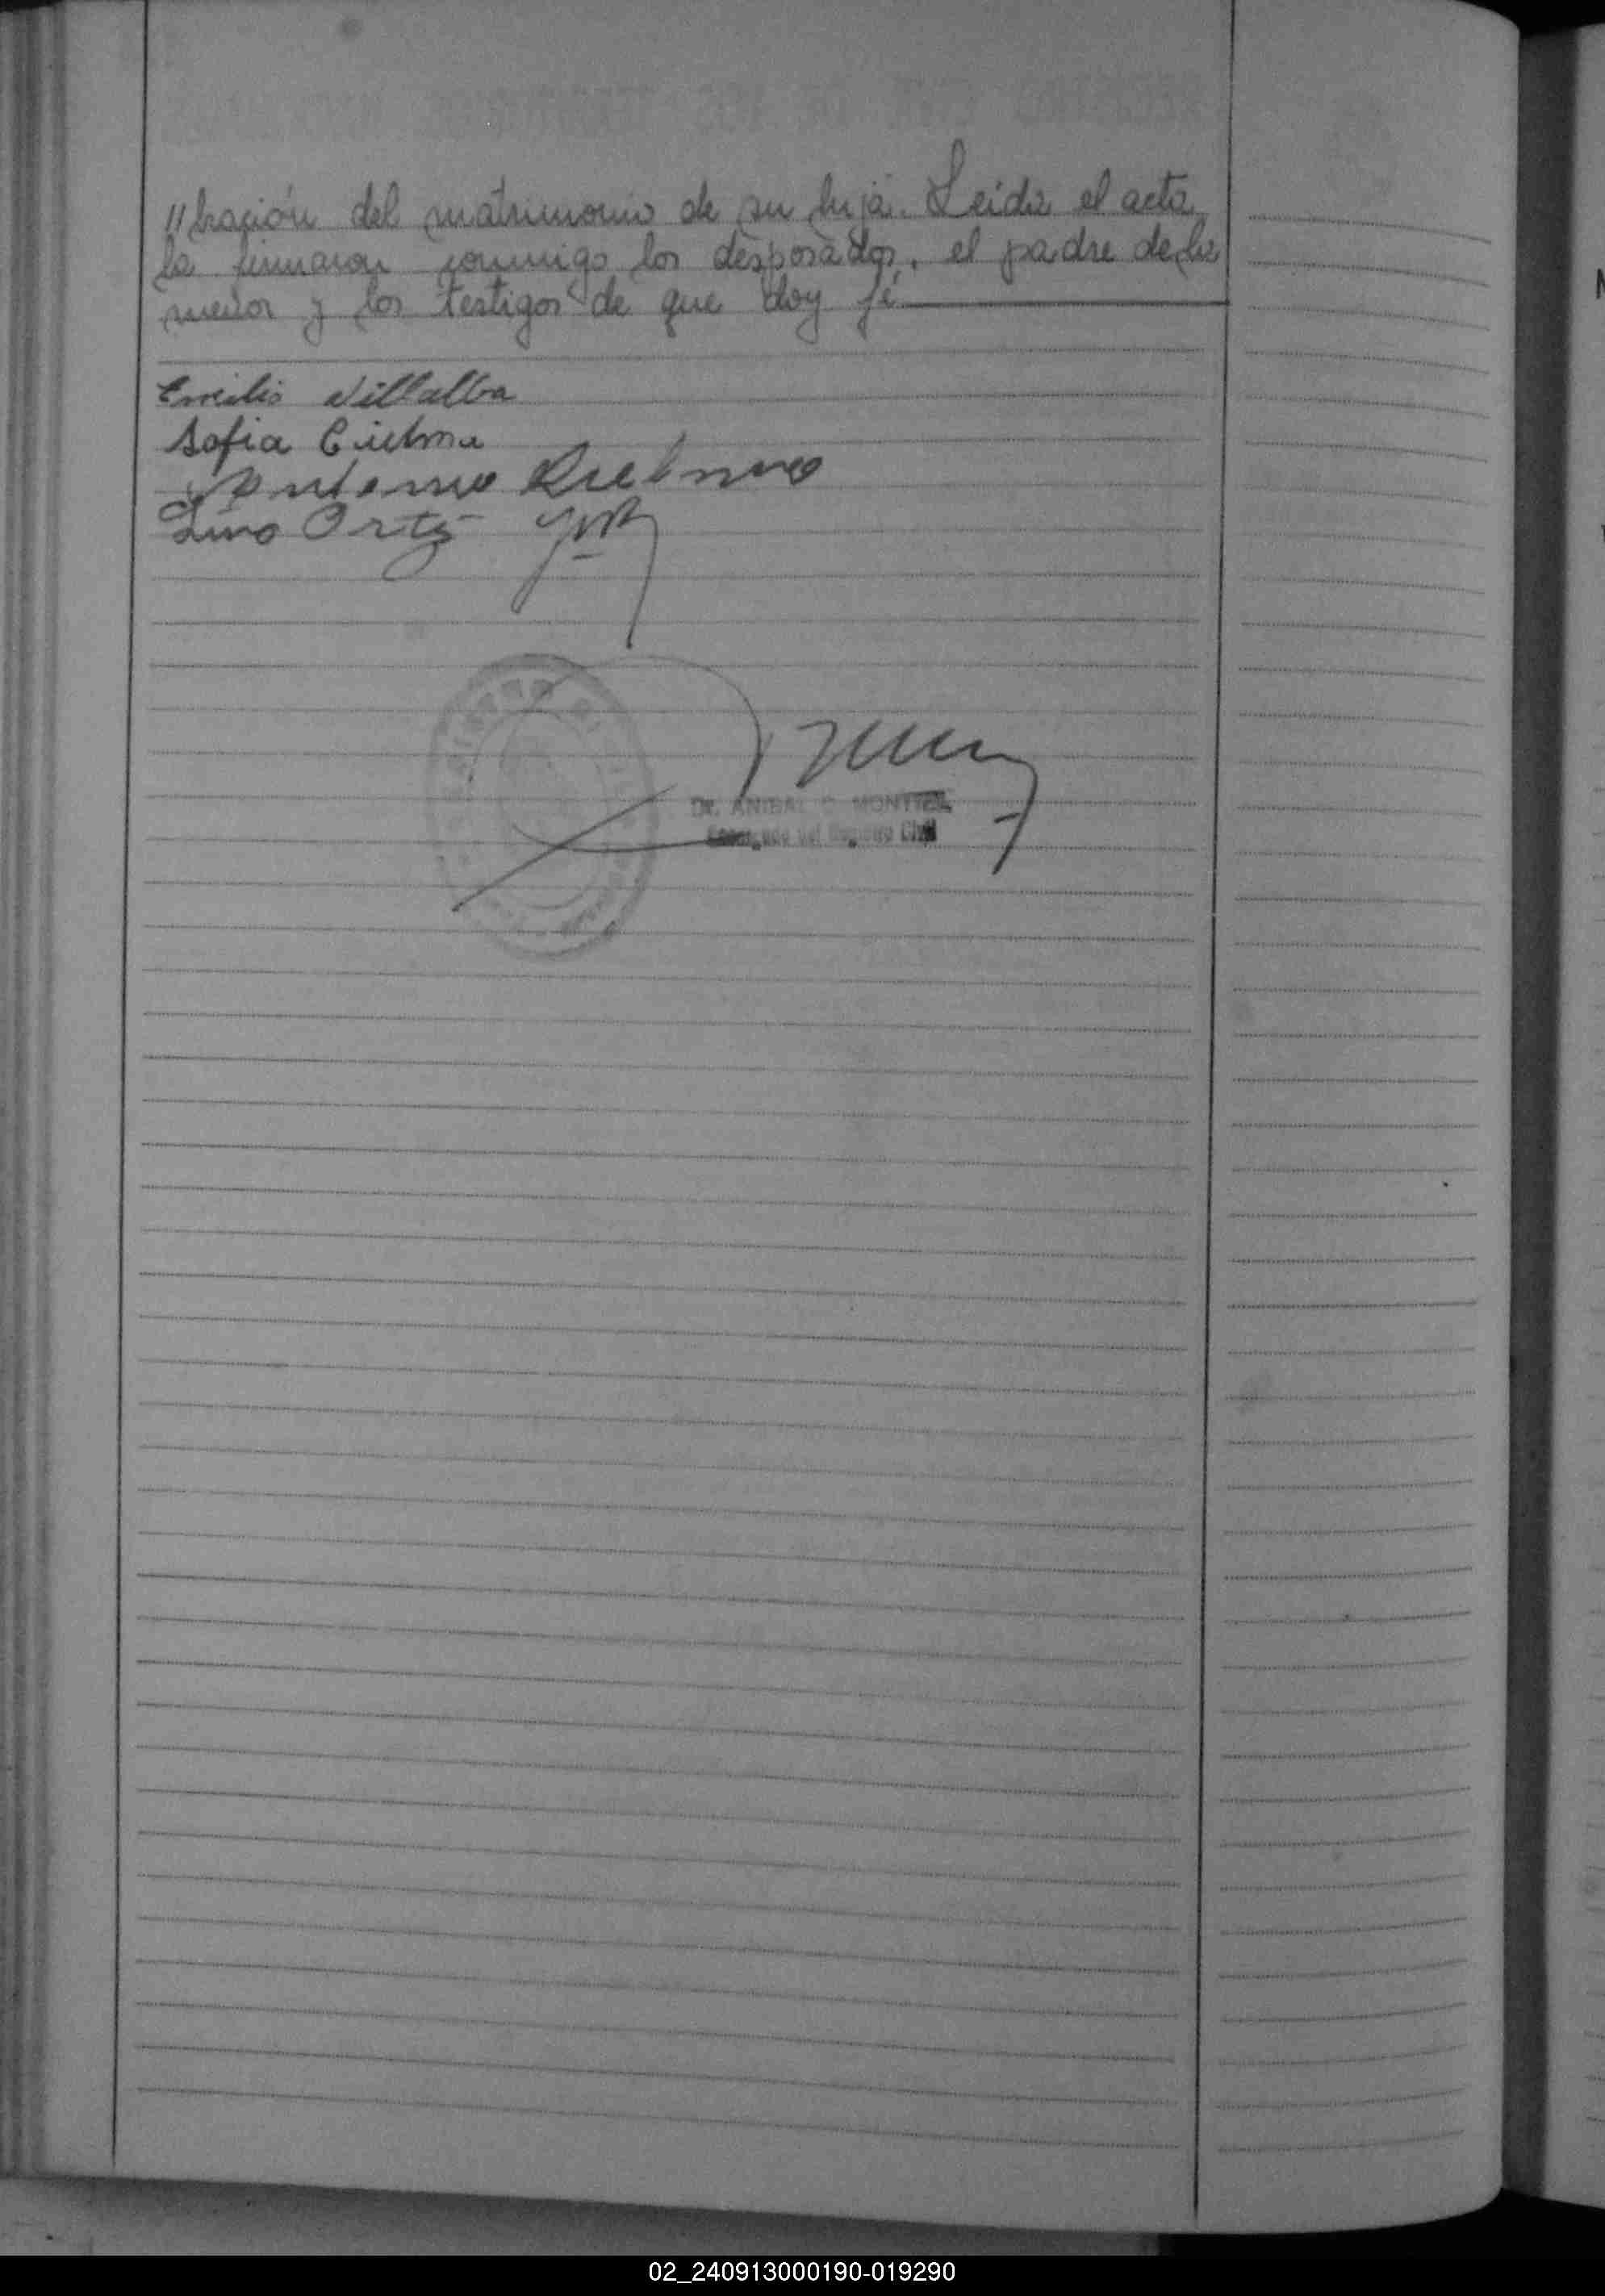 //bración del matrimonio de su hija. Leida el acta
la firmaron conmigo los desposados, el padre de la
menor y los testigos de que doy fé
Emilio Villalba
Sofia
Antonio
Lino Ortiz
Dr. ANIBAL C. MONTIEL
Encargado del Registro Civil
02_240913000190-019290